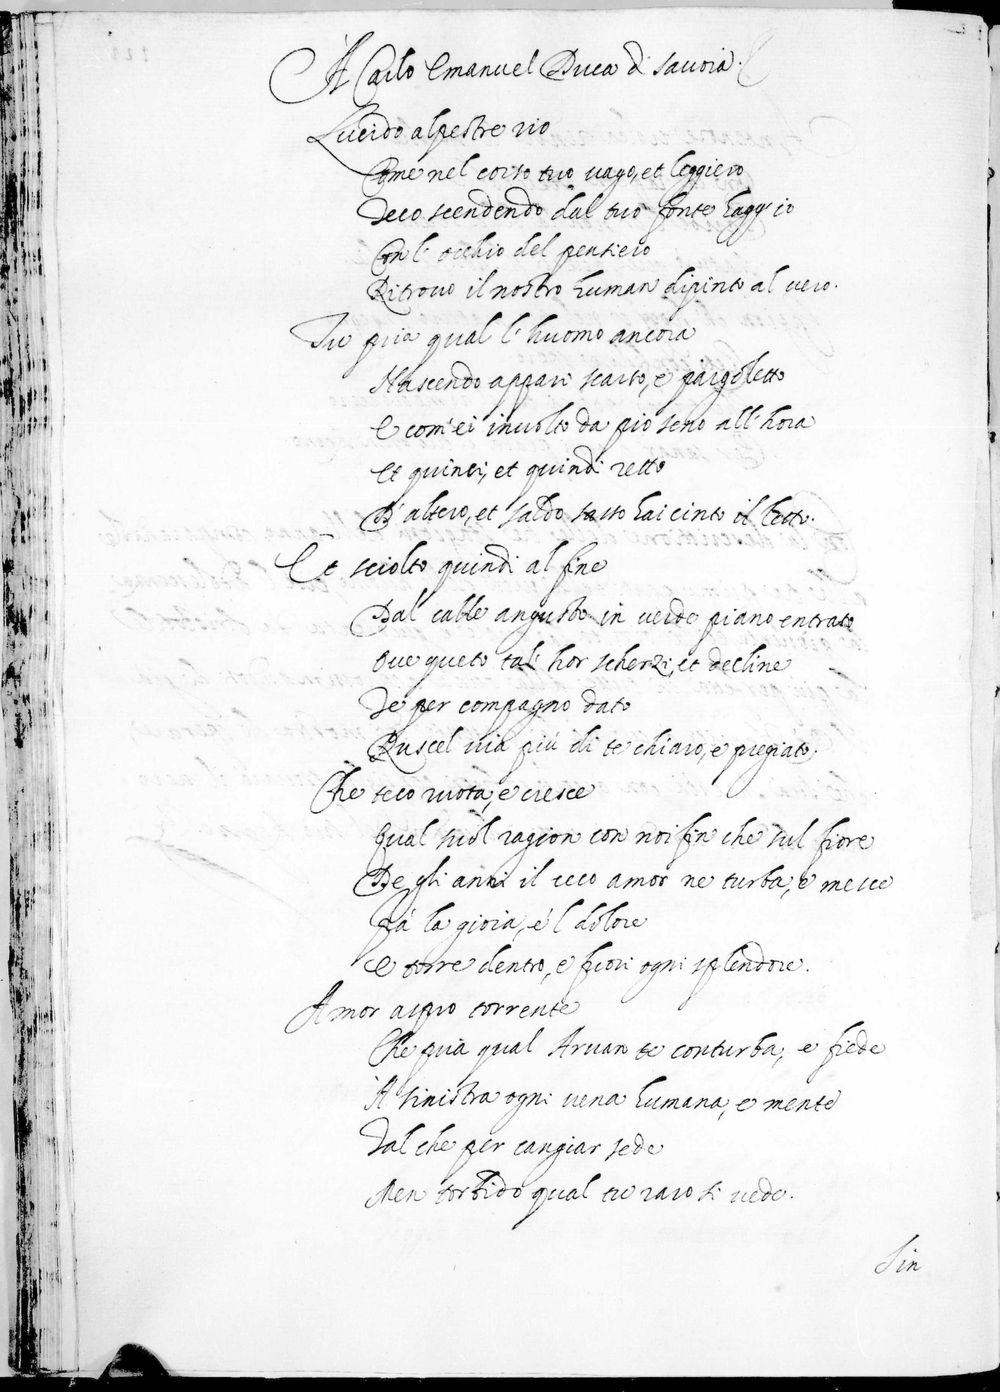 A Carlo Emanuel Duca di Savoia.
Lucido alpestre rio
Come nel corso tuo vago, et leggiero
Teco scendendo dal tuo fonte haggio
Con l'occhio del pensiero
Ritrovo il nostro human dipinto al vero.
Tu pria qual l'huomo ancora
Nascendo appari scarso, e pargoletto
E com'ei involto da pio seno all'hora
Et quinci, et quindi retto
D'altero, et saldo sasso hai cinto il letto.
Et sciolto quindi al fine
Dal calle angusto in verde piano entrato
Ove queto tal'hor scherzi, et decline
Te per compagno dato
Ruscel via più di te chiaro, e pregiato.
Che teco ruota, e cresce
Qual suol ragion con noi fin che sul fiore
De gli anni il ceco amor ne turba, e mesce
Frà la gioia, e'l dolore
E torre dentro, e fuori ogni splendore.
Amor aspro torrente
Che pria qual Arvan te conturba, e fiede
A sinistra ogni vena humana, e mente
Tal che per cangiar sede
Men torbido qual tu raro si vede.
Sin